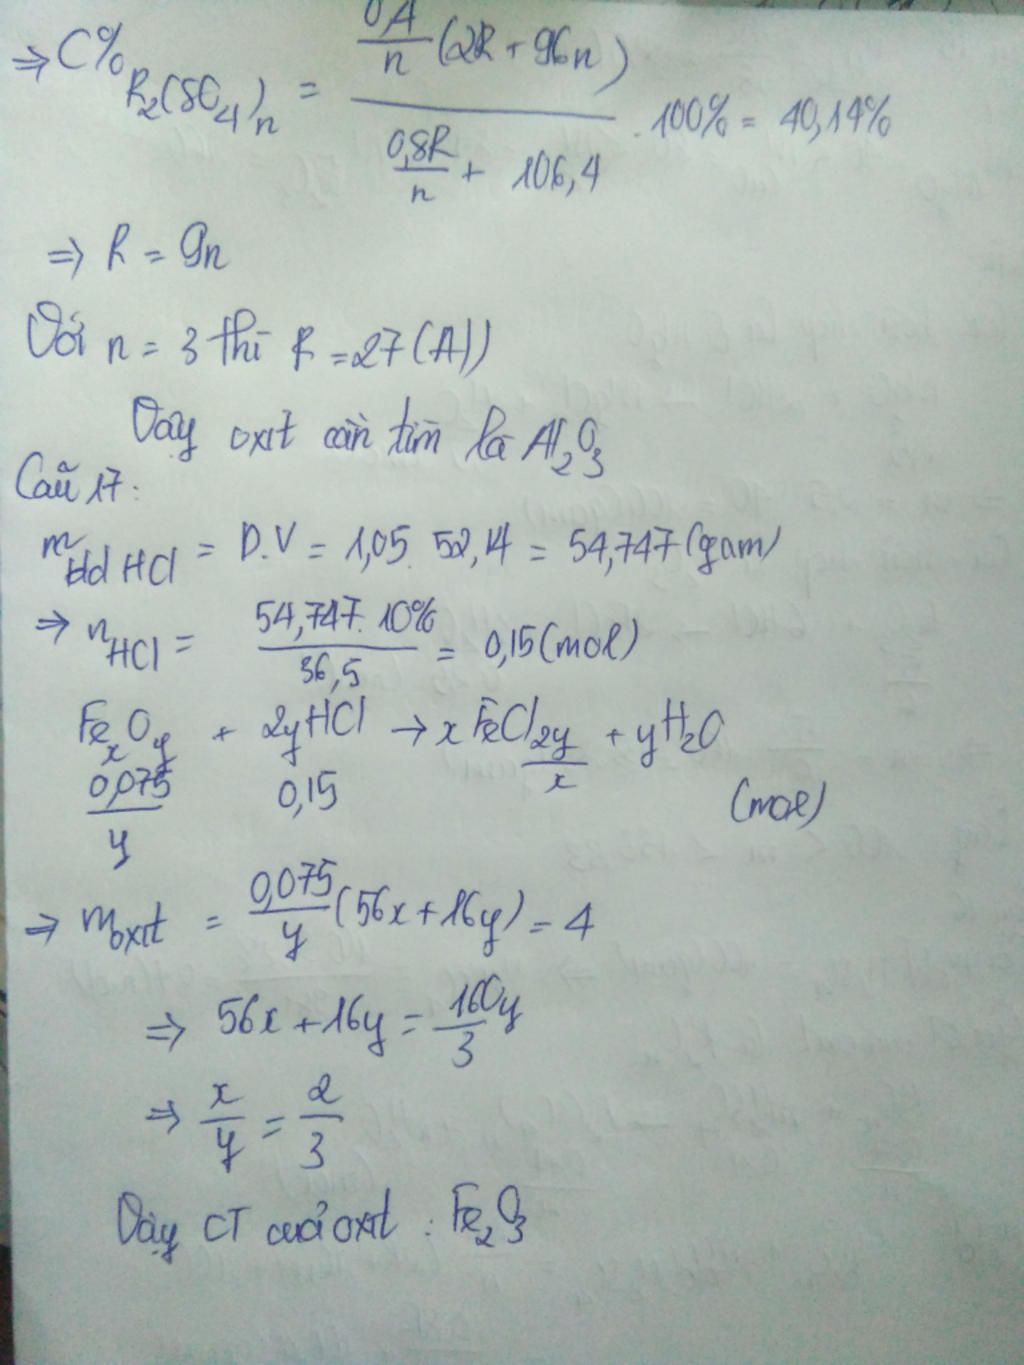 ⇒ C% R₂(SO₄)ₙ = (0,4/n (2R + 96n)) / (0,8R/n + 106,4) . 100% = 40,14%
⇒ R = 9n
Với n = 3 thì R = 27 (Al)
Vậy oxit cần tìm là Al₂O₃
Câu 17:
m dd HCl = D.V = 1,05. 52,14 = 54,747 (gam)
⇒ n HCl = (54,747. 10%) / 36,5 = 0,15 (mol)
FeₓO_y + 2yHCl → xFeCl_(2y/x) + yH₂O
0,075/y 0,15 (mol)
⇒ m oxit = 0,075/y (56x + 16y) = 4
⇒ 56x + 16y = 160y/3
⇒ x/y = 2/3
Vậy CT của oxit : Fe₂O₃